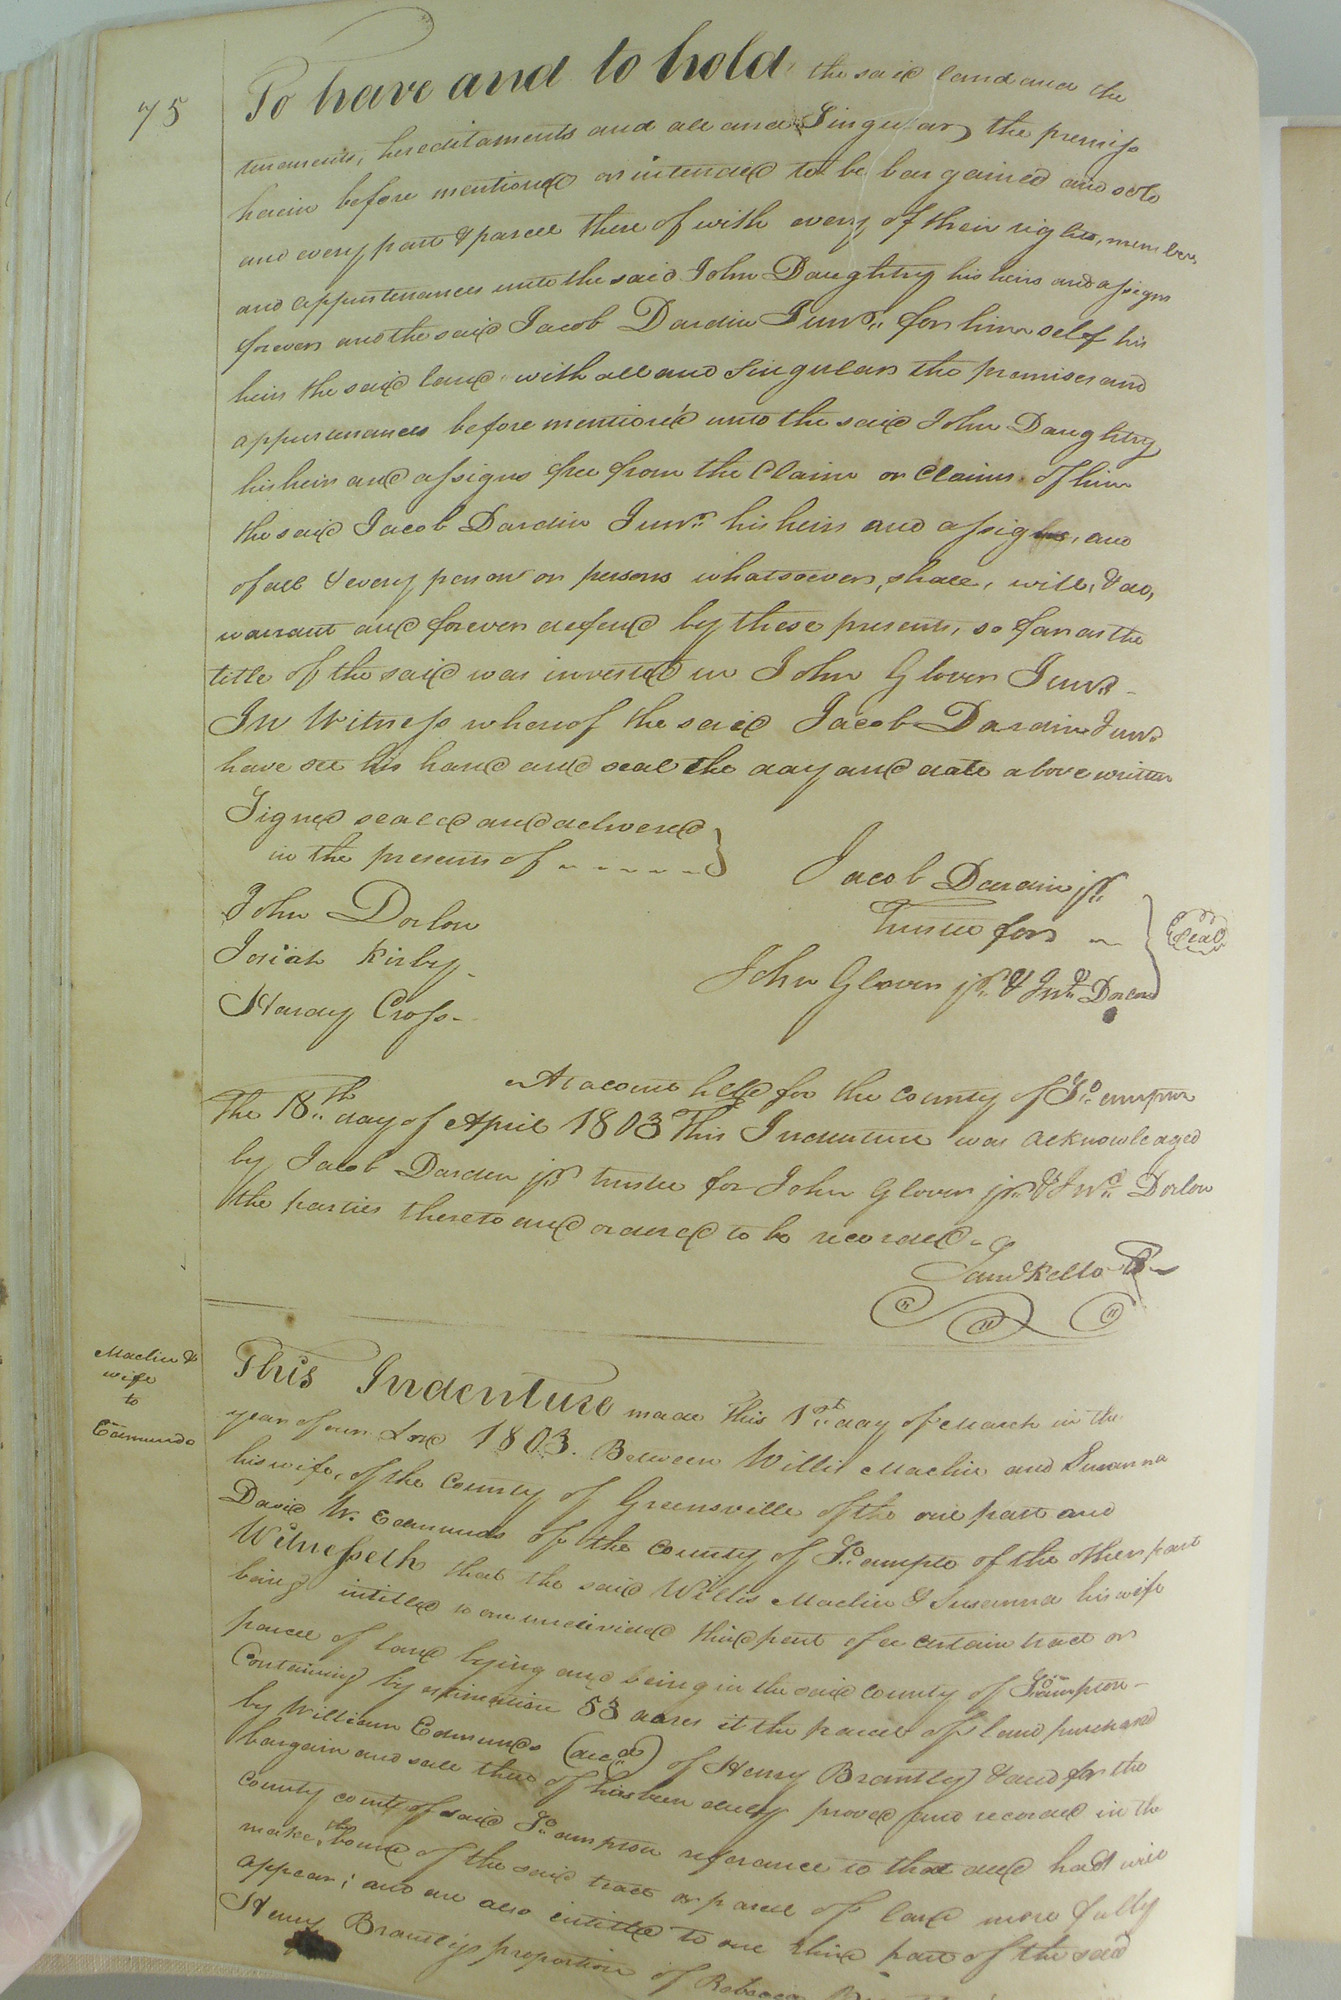 75
To have and to hold the said land and the
tenements, hereditaments and all and Singular, the premiss
herein before mentioned or intended to be bargained and sold
and every part & parcel there of with every of their rights, members,
and appurtenances unto the said John Daughtry his heirs and assigns
forever and the said Jacob Dardin Junr. for him self his
heirs the said land with all and Singular the premises and
appurtenances before mention'd unto the said John Daughtry
his heirs and assigns free from the Claim or Claims of him
the said Jacob Dardin Junr. his heirs and assigns, and
of all & every person or persons whatsoever, shall, will, & do,
warrant and forever defend by these presents, so far as the
title of the said was invested in John Glover Junr.
In Witness whereof the said Jacob Dardin Junr
have set his hand and seal the day and date above written
Signed sealed and delivered
in the presents of
John Dorlon
Josiah Kirby
Hardy Cross
Jacob Dardin jr.
trustee for
John Glover jr. & Jno. Dorlon
Seal
At a court held for the county of So.ampton
the 18th day of April 1803 This Indenture was acknowledged
by Jacob Darden jr trustee for John Glover jr. & Jno. Dorlon
the parties thereto and ordered to be recorded
Saml Kello
Maclin &
wife
to
Edmunds
This Indenture made this 1st day of March in the
year of our Lord 1803. Between Willis Maclin and Susanna
his wife, of the County of Greensville of the one part and
David W. Edmunds of the County of So.ampto of the other part
Witnesseth that the said Willis Maclin & Susanna his wife
being intitled to one undivided third part of a certain tract or
parcel of land lying and being in the said County of So.ampton
Containing by estimation 53 acres it the parcel of land purchased
by William Edmunds (decd) of Henry Brantley & and for the
bargain and sale thereof has been duly proved and recorded in the
County court of said So.ampton referance to that deed had will
make the bound of the said tract or parcel of land more fully
appear; and are also entitled to one third part of the said
Henry Brantleys proportion of Rebecca